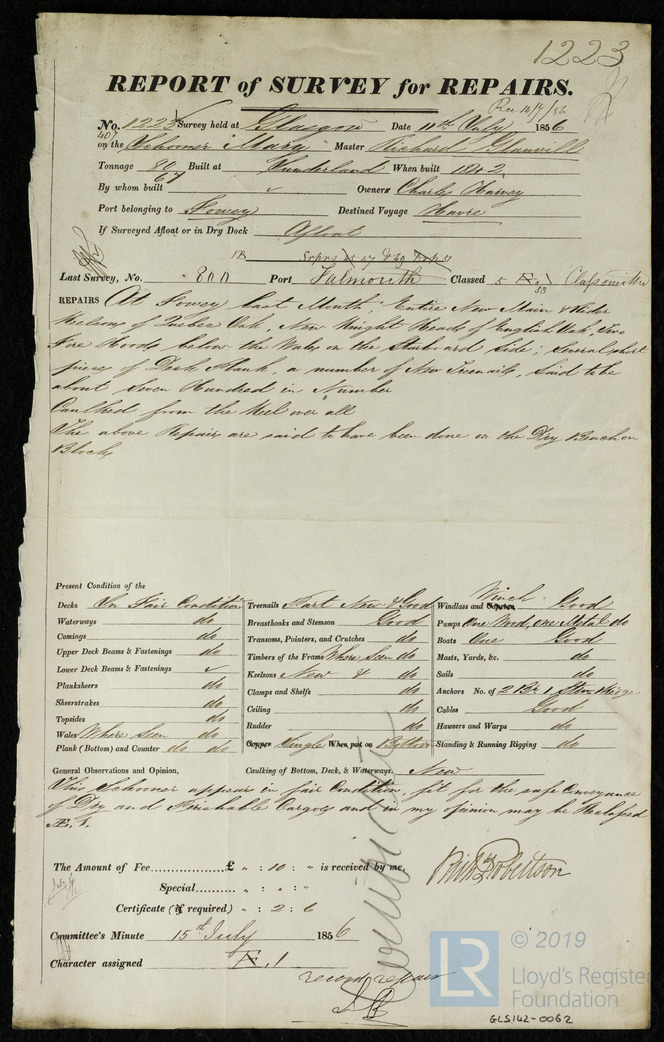 1223
REPORT of SURVEY for REPAIRS.
Rec 14/7/56
No. 1223 Survey held at Glasgow Date 11th July 1856
407
on the Schooner Mary Master Richard Glanvill
Tonnage 80 Built at Sunderland When built 1842
67
By whom built Owners Charles Harvey
Port belonging to Fowey Destined Voyage Havre
If Surveyed Afloat or in Dry Dock Afloat
Last Survey, No. 800 Port Falmouth Classed 5 Æ 1
53
REPAIRS At Fowey last Month, Entire New Main & Rider
Keelsons of Quebec Oak, New Knight Heads of English Oak, two
Fore Hoods below the Wales on the Starboard Side; Several short
pieces of Deck Plank, a number of New Treenails, Said to be
about Seven Hundred in Number
Caulked from the Keel over all
The above Repairs are said to have been done on the Dry Beach on
Blocks
Present Condition of the
Decks In Fair Condition
Waterways do
Comings do
Upper Deck Beams & Fastenings do
Lower Deck Beams & Fastenings
Planksheers do
Sheerstrakes do
Topsides do
Wales Where Seen do
Plank (Bottom) and Counter do do
Treenails Part New & Good
Breasthooks and Stemson Good
Transoms, Pointers, and Crutches do
Timbers of the Frame Where Seen do
Keelsons New & do
Clamps and Shelfs do
Ceiling do
Rudder do
Copper Single When put on Bottom
Winch
Windlass and Capstan Good
Pumps One Wood, One Metal do
Boats One Good
Masts, Yards, &c. do
Sails do
Anchors No. of 2 Br 1 Stm Kedge
Cables Good
Hausers and Warps do
Standing & Running Rigging do
General Observations and Opinion, Caulking of Bottom, Deck, & Waterways. New
This Schooner appears in fair Condition, fit for the safe Conveyance
of Dry and Perishable Cargoes and in my opinion may be Reclassed
Æ. 1.
The Amount of Fee £ " : 10 : " is received by me,
Phil Robertson
Special " : " : "
Certificate (if required) " : 2 : 6
Committee's Minute 15th July 1856
Character assigned Æ. 1
record repair
© 2019
LR
Lloyd's Register
Foundation
GLS142-0062